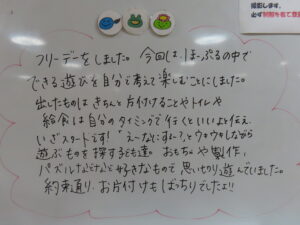 撮影します。
必ず制服を着て登園
フリーデーをしました。今回は、ほっぷるの中で
できる遊びを自分で考えて楽しむことにしました。
出したものはきちんと片付けることやトイレや
給食は自分のタイミングで行くといいよと伝え、
いざスタートです！“え〜なにすん〜？”とウキウキしながら
遊ぶものを探す子ども達。おもちゃや製作、
パズルなどなど好きなもので思いっきり遊んでいました。
約束通り、お片付けもばっちりでしたよ!!